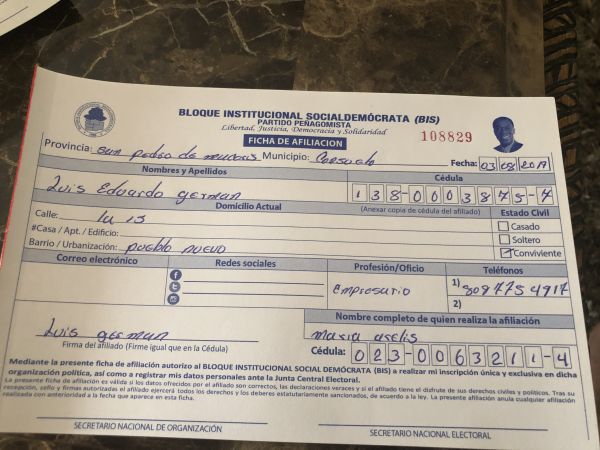 BLOQUE INSTITUCIONAL SOCIALDEMÓCRATA (BIS)
PARTIDO PEÑAGOMISTA
Libertad, Justicia, Democracia y Solidaridad
108829
FICHA DE AFILIACION
Provincia: San pedro de macoris Municipio: Consuelo Fecha: 03/08/2017
Nombres y Apellidos Cédula
Luis Eduardo german 138-0003875-7
Domicilio Actual (Anexar copia de cédula del afiliado) Estado Civil
Calle: la 15 Casado
#Casa / Apt. / Edificio: Soltero
Barrio / Urbanización: pueblo nuevo Conviviente
Correo electrónico Redes sociales Profesión/Oficio Teléfonos
Empresario 1) 8087754917
2)
Nombre completo de quien realiza la afiliación
Luis german maria
Firma del afiliado (Firme igual que en la Cédula) Cédula: 023-0063211-4
Mediante la presente ficha de afiliación autorizo al BLOQUE INSTITUCIONAL SOCIAL DEMÓCRATA (BIS) a realizar mi inscripción única y exclusiva en dicha
organización política, así como a registrar mis datos personales ante la Junta Central Electoral.
La presente ficha de afiliación es válida si los datos ofrecidos por el afiliado son correctos, las declaraciones veraces y si el afiliado tiene el disfrute de sus derechos civiles y políticos. Tras su
recepción, sello y firmas autorizadas el afiliado ejercerá todos los derechos y los deberes estatutariamente sancionados, de acuerdo a la ley. La presente afiliación anula cualquier afiliación
realizada con anterioridad a la fecha que aparece en esta ficha.
SECRETARIO NACIONAL DE ORGANIZACIÓN SECRETARIO NACIONAL ELECTORAL